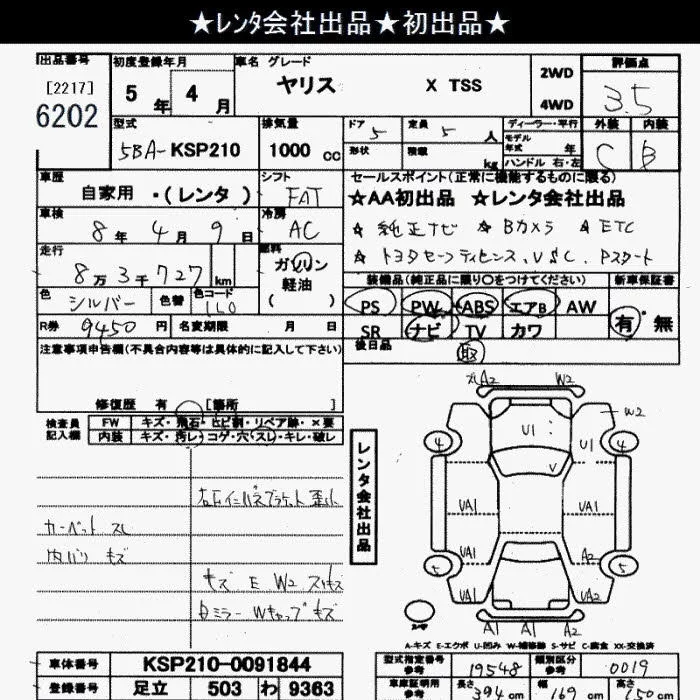 ★レンタ会社出品★初出品★
出品番号
[2217]
6202
初度登録年月
5年 4月
車名 グレード
ヤリス X TSS
2WD
4WD
評価点
3.5
外装 内装
C B
型式
5BA-KSP210
排気量
1000 cc
ドア 5
定員 5 人
形状
積載 kg
ディーラー・平行
モデル年式 年
ハンドル 右・左
車歴
自家用 ・(レンタ)
シフト
FAT
セールスポイント(正常に機能するものに限る)
★AA初出品 ★レンタ会社出品
☆ 純正ナビ ☆ Bカメラ ☆ ETC
☆ トヨタセーフティセンス、VSC、Pスタート
車検
8年 4月 9日
冷房
AC
走行
8万3千727 km
燃料
ガソリン
軽油
( )
装備品(純正品に限り○をつけてください)
新車保証書
PS PW ABS エアB AW
SR ナビ TV カワ
有・無
色
シルバー
色替
色コード
1L0
R券 9450円
名変期限 月 日
後日品
取
注意事項申告欄(不具合内容等は具体的に記入して下さい)
修復歴 有 [箇所 ]
検査員記入欄
FW キズ・飛石・ヒビ割・リペア跡・×要
内装 キズ・汚レ・コゲ・穴・スレ・キレ・破レ
カーペット スレ
内バリ キズ
キズ E W2 スリキズ
レンタ会社出品
A2 W2
W2
U1
U1
V
4 4
VA1 VA1
VA1 A2
5 5
VA1 VA2
A1 A1 A2
A-キズ E-エクボ U-凹み W-補修跡 S-サビ C-腐食 XX-交換済
車体番号 KSP210-0091844
登録番号 足立 503 わ 9363
型式指定番号 参考 19548
類別区分 参考 0019
車庫証明用 参考 長さ 394 cm 幅 169 cm 高さ 150 cm